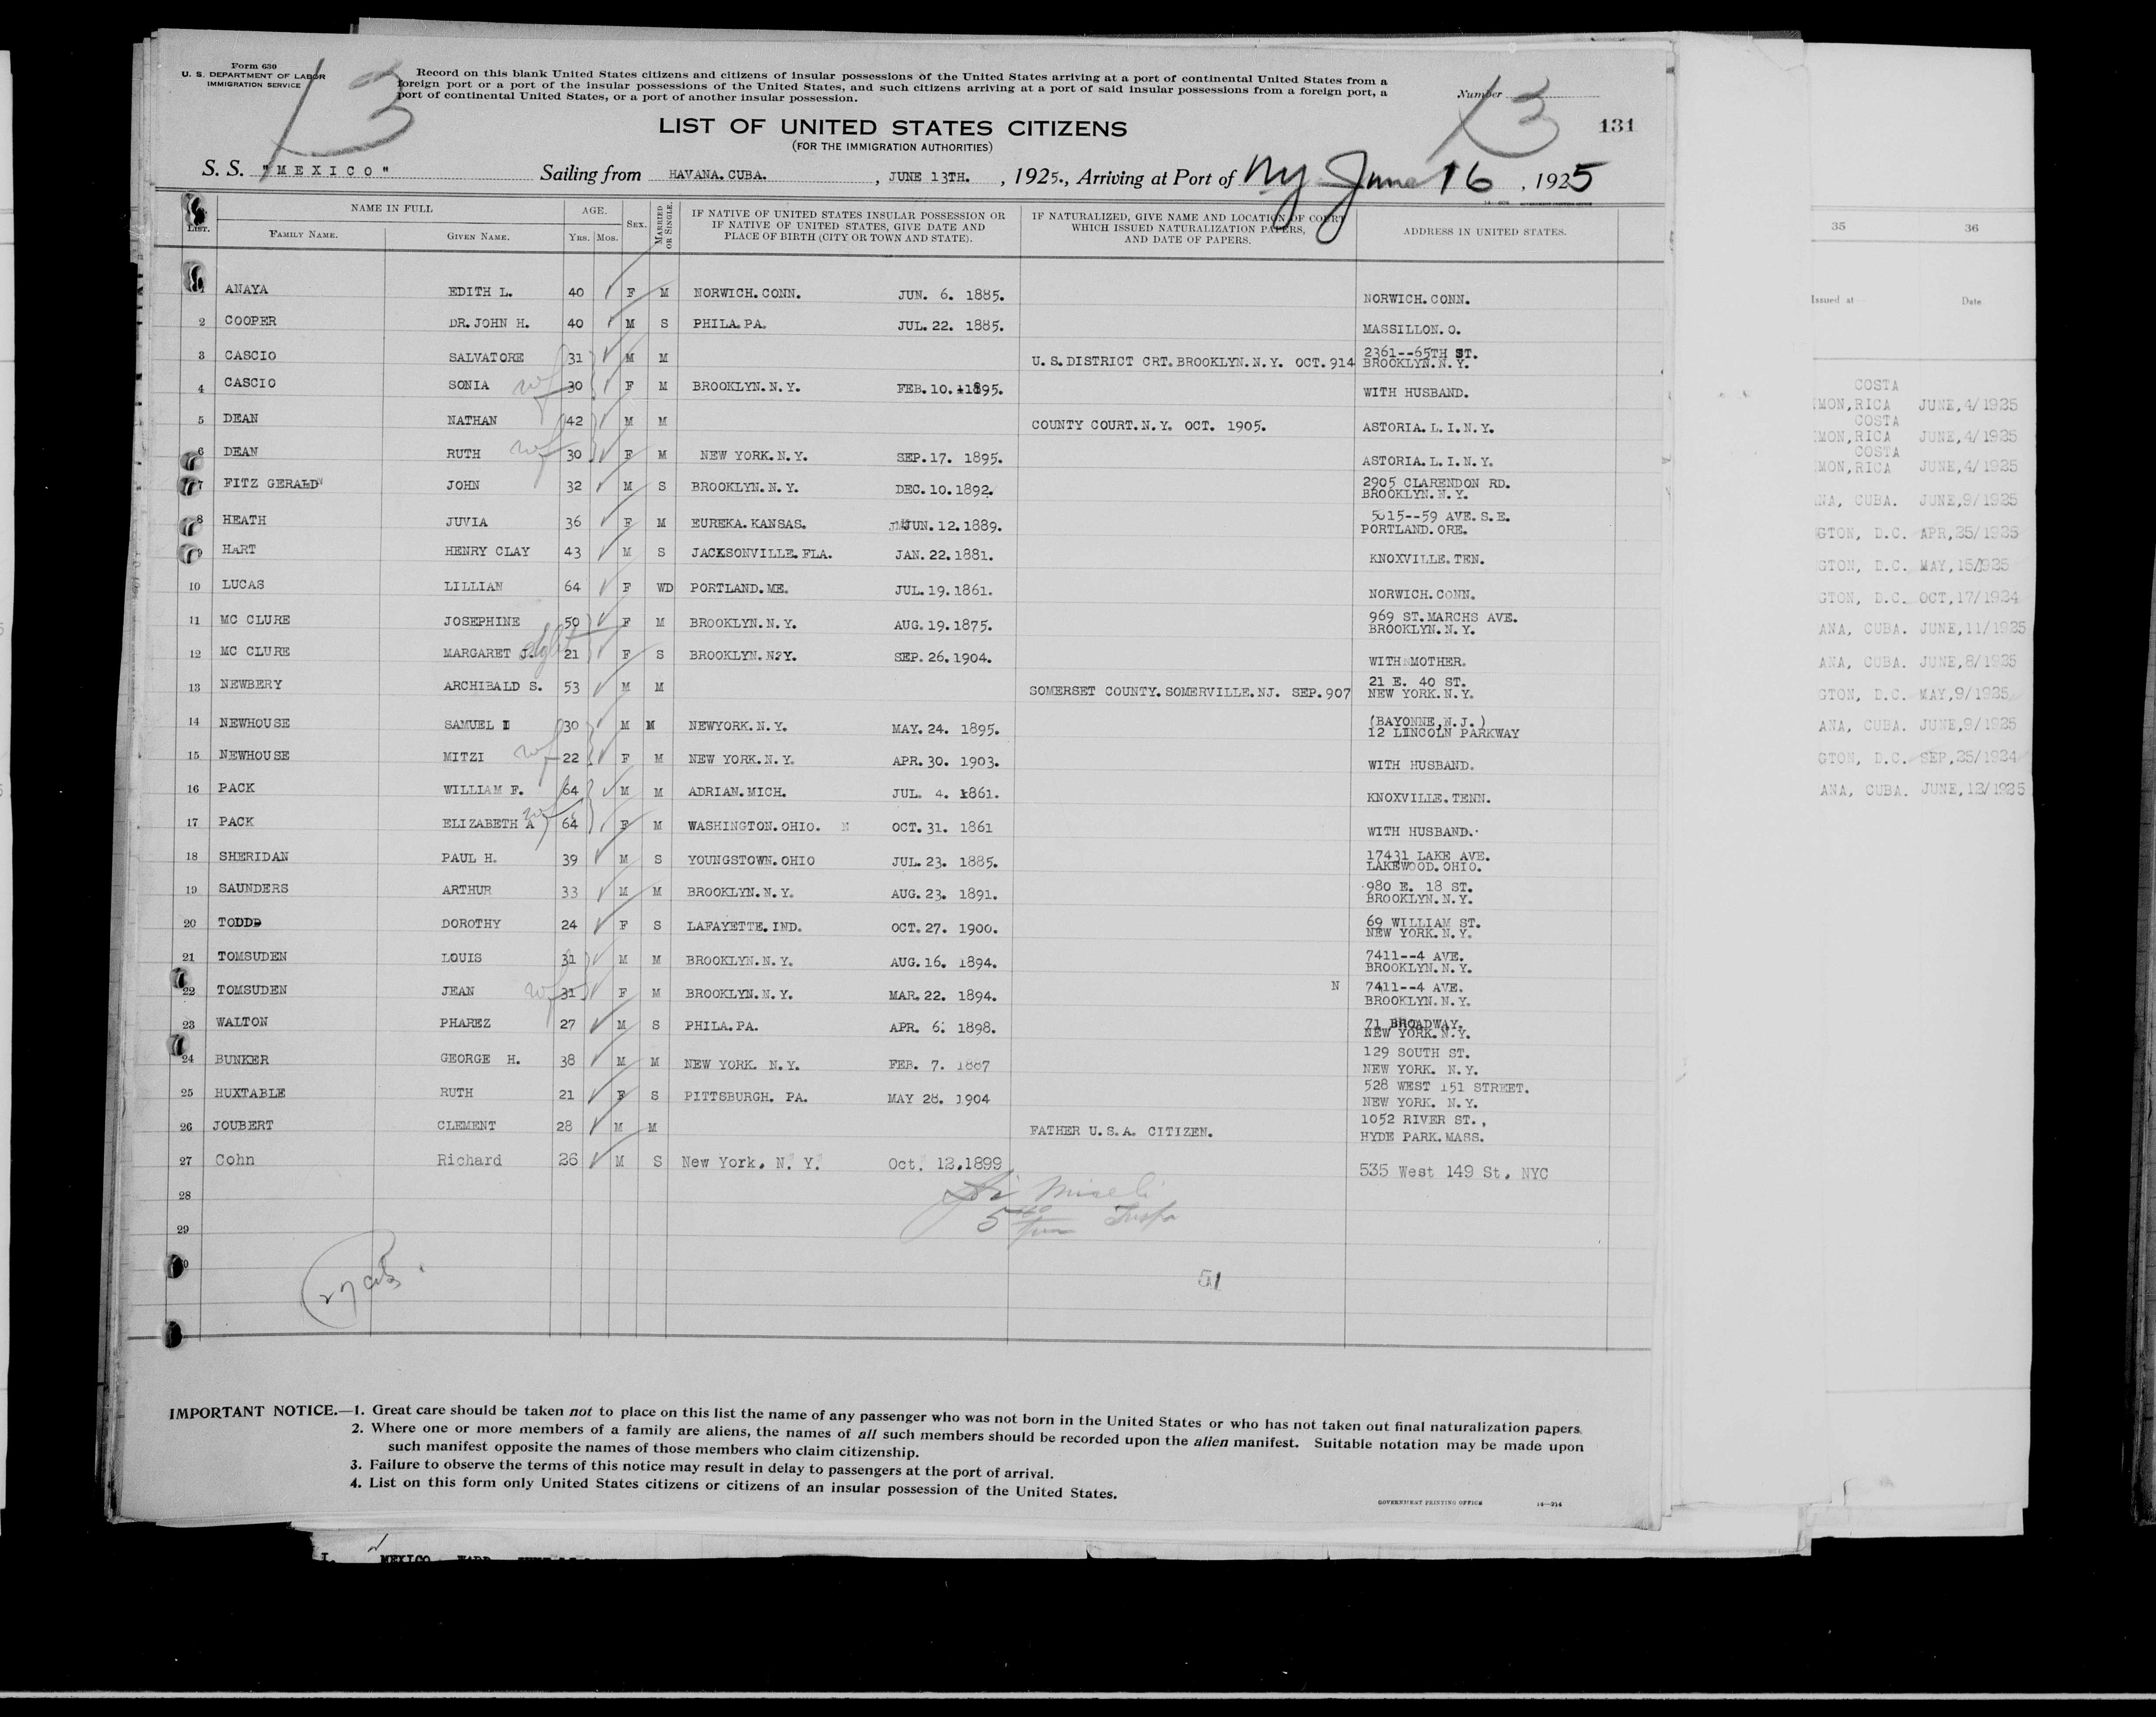 Form 630
U. S. DEPARTMENT OF LABOR
IMMIGRATION SERVICE
13
Record on this blank United States citizens and citizens of insular possessions of the United States arriving at a port of continental United States from a
foreign port or a port of the insular possessions of the United States, and such citizens arriving at a port of said insular possessions from a foreign port, a
port of continental United States, or a port of another insular possession.
Number
13
131
LIST OF UNITED STATES CITIZENS
(FOR THE IMMIGRATION AUTHORITIES)
S. S. "MEXICO" Sailing from HAVANA.CUBA., JUNE 13TH., 1925., Arriving at Port of Ny June 16, 1925
LIST. NAME IN FULL AGE. SEX. MARRIED OR SINGLE. IF NATIVE OF UNITED STATES INSULAR POSSESSION OR IF NATIVE OF UNITED STATES, GIVE DATE AND PLACE OF BIRTH (CITY OR TOWN AND STATE). IF NATURALIZED, GIVE NAME AND LOCATION OF COURT WHICH ISSUED NATURALIZATION PAPERS, AND DATE OF PAPERS. ADDRESS IN UNITED STATES.
FAMILY NAME. GIVEN NAME. YRS. MOS.
1 ANAYA EDITH L. 40 F M NORWICH.CONN. JUN. 6. 1885. NORWICH.CONN.
2 COOPER DR.JOHN H. 40 M S PHILA.PA. JUL.22. 1885. MASSILLON.O.
3 CASCIO SALVATORE 31 M M U.S.DISTRICT CRT.BROOKLYN.N.Y. OCT.914 2361--65TH ST. BROOKLYN.N.Y.
4 CASCIO SONIA wf 30 F M BROOKLYN.N.Y. FEB.10.1895. WITH HUSBAND.
5 DEAN NATHAN 42 M M COUNTY COURT.N.Y. OCT. 1905. ASTORIA.L.I.N.Y.
6 DEAN RUTH wf 30 F M NEW YORK.N.Y. SEP.17. 1895. ASTORIA.L.I.N.Y.
7 FITZ GERALD JOHN 32 M S BROOKLYN.N.Y. DEC.10.1892. 2905 CLARENDON RD. BROOKLYN.N.Y.
8 HEATH JUVIA 36 F M EUREKA.KANSAS. JUN.12.1889. 5015--59 AVE.S.E. PORTLAND.ORE.
9 HART HENRY CLAY 43 M S JACKSONVILLE.FLA. JAN.22.1881. KNOXVILLE.TEN.
10 LUCAS LILLIAN 64 F WD PORTLAND.ME. JUL.19.1861. NORWICH.CONN.
11 MC CLURE JOSEPHINE 50 F M BROOKLYN.N.Y. AUG.19.1875. 969 ST.MARCHS AVE. BROOKLYN.N.Y.
12 MC CLURE MARGARET J. 21 F S BROOKLYN.N?Y. SEP.26.1904. WITH MOTHER.
13 NEWBERY ARCHIBALD S. 53 M M SOMERSET COUNTY.SOMERVILLE.NJ. SEP.907 21 E. 40 ST. NEW YORK.N.Y.
14 NEWHOUSE SAMUEL I 30 M M NEWYORK.N.Y. MAY.24. 1895. (BAYONNE,N.J.) 12 LINCOLN PARKWAY
15 NEWHOUSE MITZI wf 22 F M NEW YORK.N.Y. APR.30. 1903. WITH HUSBAND.
16 PACK WILLIAM F. 64 M M ADRIAN.MICH. JUL. 4. 1861. KNOXVILLE.TENN.
17 PACK ELIZABETH A wf 64 F M WASHINGTON.OHIO. N OCT.31. 1861 WITH HUSBAND.
18 SHERIDAN PAUL H. 39 M S YOUNGSTOWN.OHIO JUL.23. 1885. 17431 LAKE AVE. LAKEWOOD.OHIO.
19 SAUNDERS ARTHUR 33 M M BROOKLYN.N.Y. AUG.23. 1891. 980 E. 18 ST. BROOKLYN.N.Y.
20 TODDD DOROTHY 24 F S LAFAYETTE.IND. OCT.27. 1900. 69 WILLIAM ST. NEW YORK.N.Y.
21 TOMSUDEN LOUIS 31 M M BROOKLYN.N.Y. AUG.16. 1894. 7411--4 AVE. BROOKLYN.N.Y.
22 TOMSUDEN JEAN wf 31 F M BROOKLYN.N.Y. MAR.22. 1894. N 7411--4 AVE. BROOKLYN.N.Y.
23 WALTON PHAREZ 27 M S PHILA.PA. APR. 6. 1898. 71 BROADWAY. NEW YORK.N.Y.
24 BUNKER GEORGE H. 38 M M NEW YORK. N.Y. FEB. 7. 1887 129 SOUTH ST. NEW YORK. N.Y.
25 HUXTABLE RUTH 21 F S PITTSBURGH. PA. MAY 28. 1904 528 WEST 151 STREET. NEW YORK. N.Y.
26 JOUBERT CLEMENT 28 M M FATHER U.S.A. CITIZEN. 1052 RIVER ST., HYDE PARK.MASS.
27 Cohn Richard 26 M S New York. N. Y. Oct. 12.1899 535 West 149 St. NYC
28
29
51
IMPORTANT NOTICE.—1. Great care should be taken not to place on this list the name of any passenger who was not born in the United States or who has not taken out final naturalization papers.
2. Where one or more members of a family are aliens, the names of all such members should be recorded upon the alien manifest. Suitable notation may be made upon
such manifest opposite the names of those members who claim citizenship.
3. Failure to observe the terms of this notice may result in delay to passengers at the port of arrival.
4. List on this form only United States citizens or citizens of an insular possession of the United States.
GOVERNMENT PRINTING OFFICE 14—214
35 36
Issued at— Date
COSTA
IMON,RICA JUNE,4/1925
COSTA
IMON,RICA JUNE,4/1925
COSTA
IMON,RICA JUNE,4/1925
NA, CUBA. JUNE,9/1925
GTON, D.C. APR,25/1925
GTON, D.C. MAY,15/1925
GTON, D.C. OCT,17/1924
ANA, CUBA. JUNE,11/1925
ANA, CUBA. JUNE,8/1925
GTON, D.C. MAY,9/1925
ANA, CUBA. JUNE,9/1925
GTON, D.C. SEP,25/1924
ANA, CUBA. JUNE,12/1925